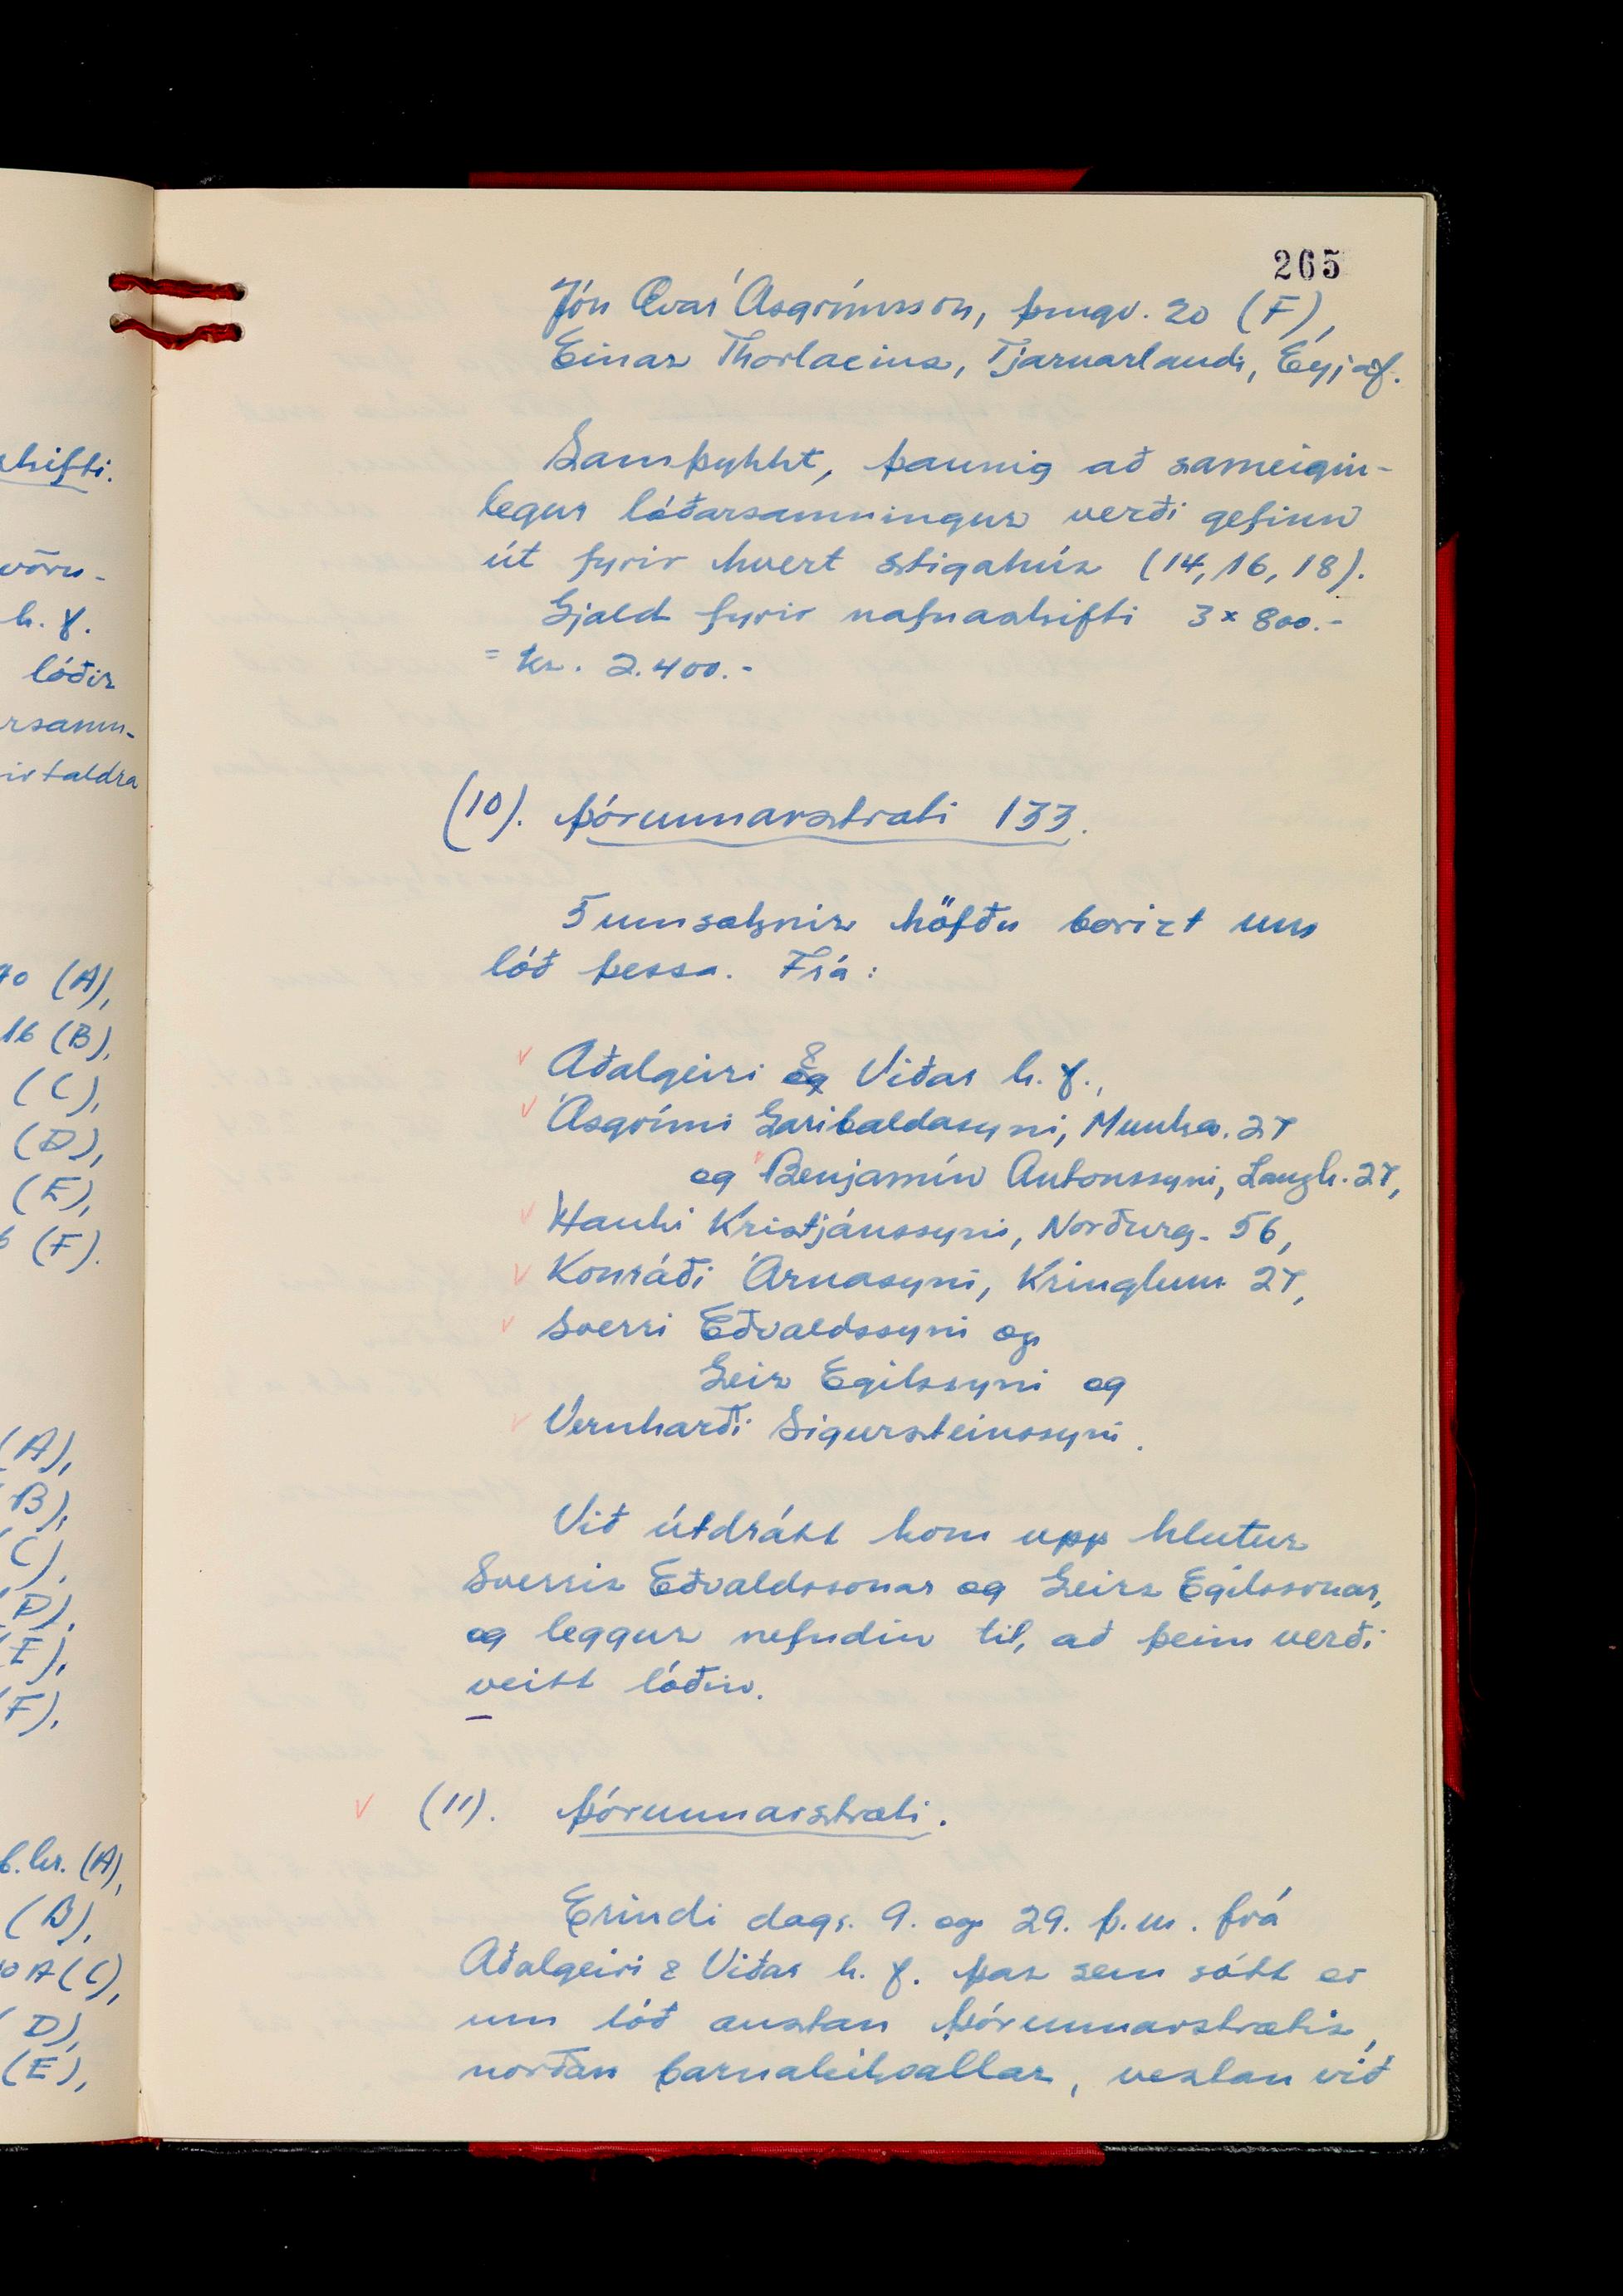 skifti.
vöru-
h.f.
lóðir
rsamn-
irtaldra
70 (A),
16 (B),
(C),
(D),
(E),
6 (F).
(A),
B),
C),
D),
E),
F),
b.kr. (A),
(B),
0 A (C),
D),
(E),
265
Jón Ævar Ásgrímsson, Þingv. 20 (F),
Einar Thorlacius, Tjarnarlandi, Eyjaf.
Samþykkt, þannig að sameigin-
legur lóðarsamningur verði gefinn
út fyrir hvert stigahús (14, 16, 18).
Gjald fyrir nafnaskifti 3 x 800.-
= kr. 2.400.-
(10). Þórunnarstræti 133.
5 umsóknir höfðu borizt um
lóð þessa. Frá:
Aðalgeiri & Viðar h.f.,
Ásgrími Garibaldasyni, Munka. 27
og Benjamín Antonssyni, Langh. 27,
Hauki Kristjánssyni, Norðurg. 56,
Konráði Árnasyni, Kringlum 27,
Sverri Eðvaldssyni og
Geir Egilssyni og
Vernharði Sigursteinssyni.
Við útdrátt kom upp hlutur
Sverris Eðvaldssonar og Geirs Egilssonar,
og leggur nefndin til, að þeim verði
veitt lóðin.
(11). Þórunnarstræti.
Erindi dags. 9. og 29. þ.m. frá
Aðalgeiri & Viðar h.f. þar sem sótt er
um lóð austan Þórunnarstrætis,
norðan barnaleikvallar, vestan við